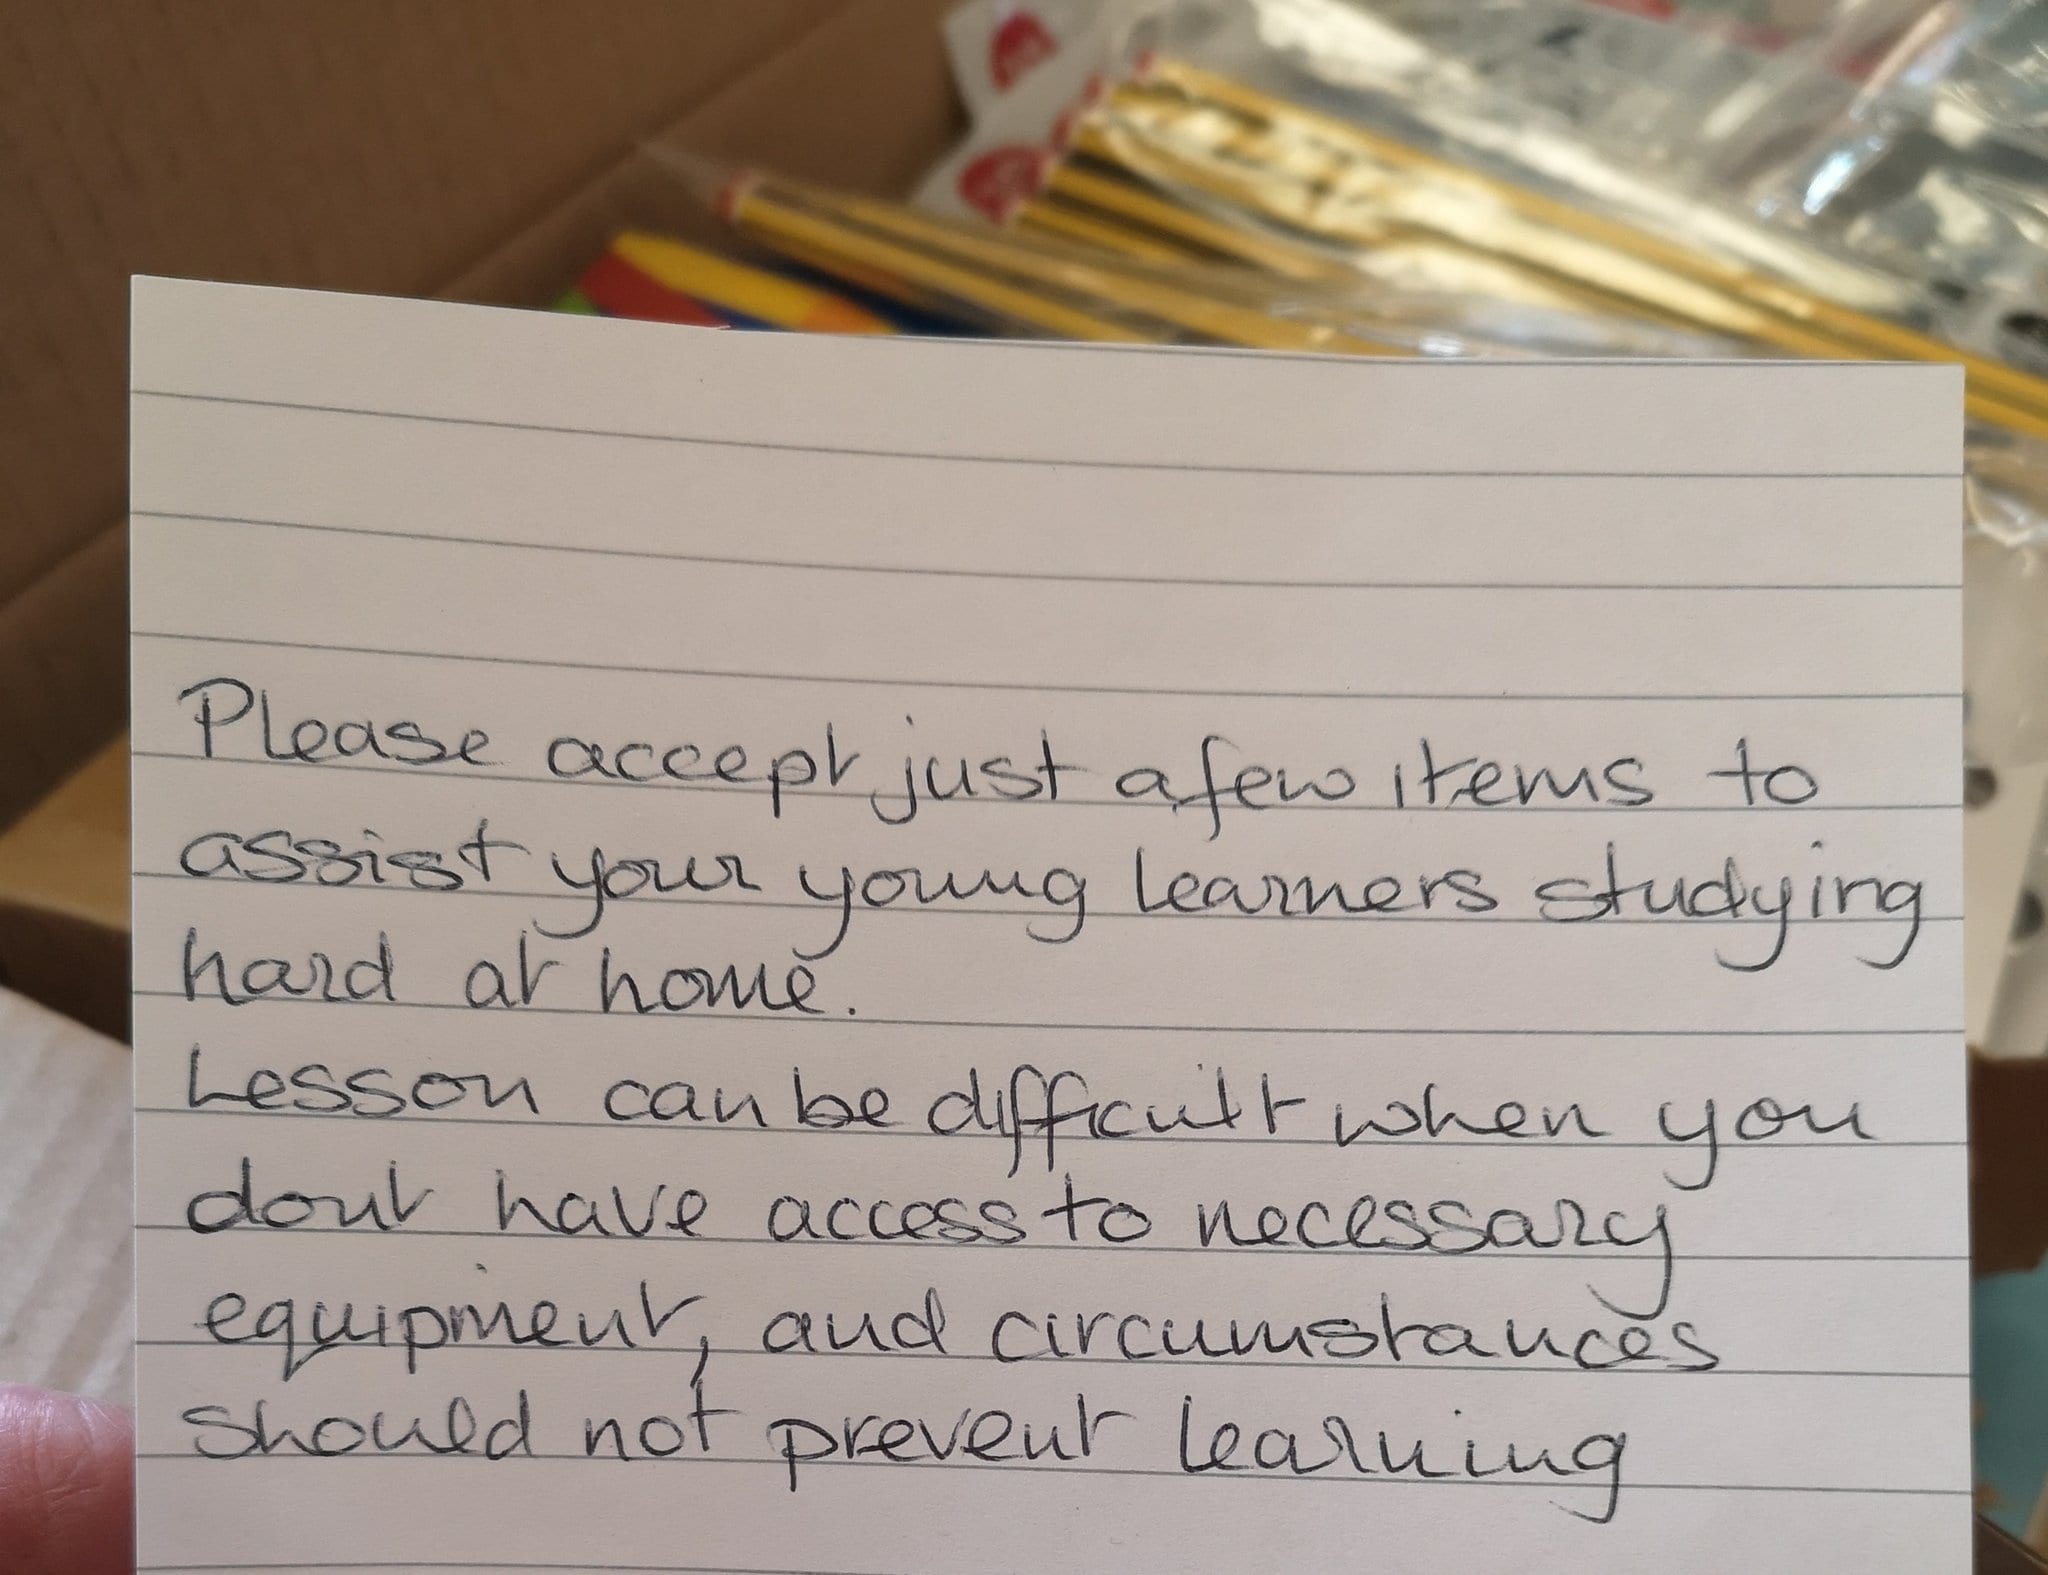 Please accept just a few items to
assist your young learners studying
hard at home.
Lesson can be difficult when you
dont have access to necessary
equipment, and circumstances
should not prevent learning